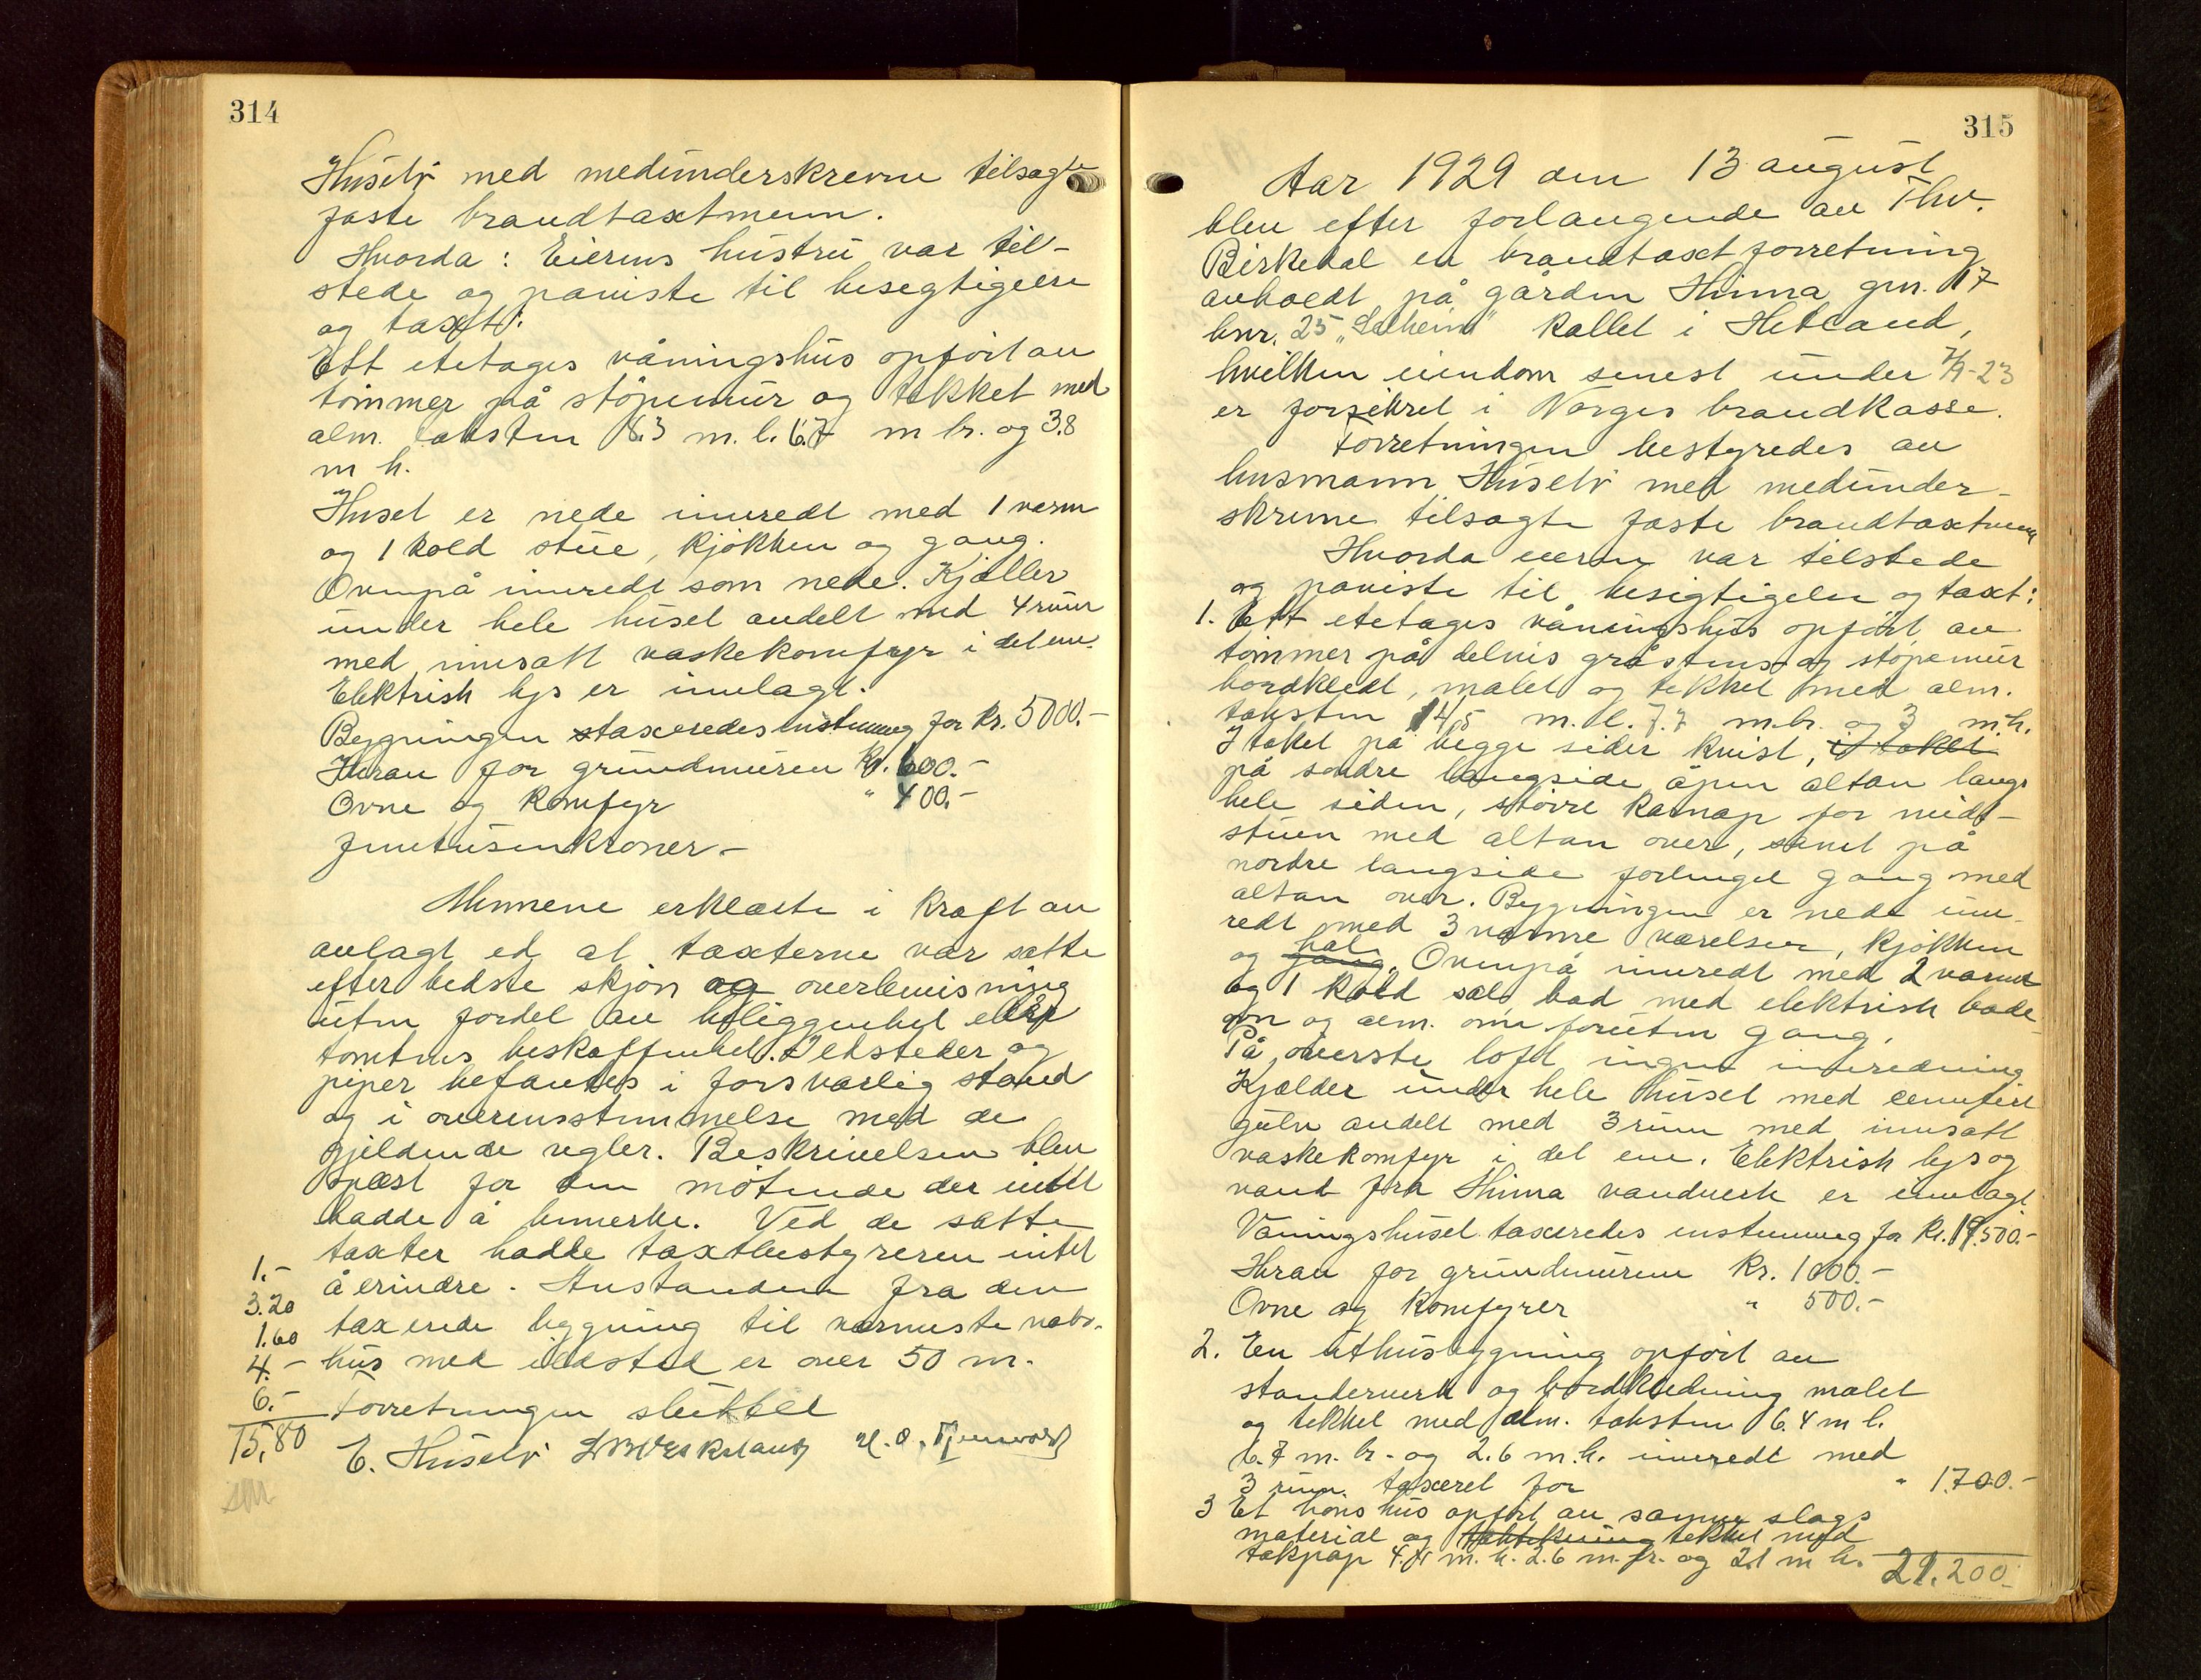 314
Huselv med medunderskrevne tilsagte
faste brandtaxtmenn.
Hvorda: Eierens hustru var til-
stede og paaviste til besegtigelse
og taxt:
Ett etetages våningshus opført av
tømmer på støpemur og tekket med
alm. taksten 8.3 m. l. 6.7 m br. og 3.8
m h.
Huset er nede innredt med 1 varm
og 1 kold stue, kjøkken og gang.
Ovenpå innredt som nede. Kjæller
under hele huset avdelt med 4 rum
med innsatt vaskekomfyr i det ene.
Elektrisk lys er innlagt.
Bygningen taxeredes enstemmig for kr. 5000.-
Herav for grundmuren Kr. 600.-
Ovne og komfyr " 400.-
Femtusenkroner.-
Mennene erklærte i kraft av
avlagt ed at taxterne var satte
efter bedste skjøn og overbevisning
uten fordel av beliggenhet eller
tomtens beskaffenhet. Ildsteder og
piper befantes i forsvarlig stand
og i overensstemmelse med de
gjeldende regler. Beskrivelsen blev
oplæst for den møtende der intet
hadde å bemerke. Ved de satte
taxter hadde taxtbestyreren intet
å erindre. Avstanden fra den
taxerede bygning til nærmeste nabo-
hus med ildsted er over 50 m.
Forretningen sluttet
E. Huselv
1.-
3.20
1.60
4.-
6.-
15,80
315
Aar 1929 den 13 august
blev efter forlangende av Thv.
Birkedal en brandtaxtforretning
avholdt på gården Hinna gnr. 17
bnr. 25 "Solheim" kallet i Hetland,
hvilken eiendom senest under 7/9-23
er forsikret i Norges brandkasse.
Forretningen bestyredes av
husmann Huselv med medunder-
skrevne tilsagte faste brandtaxtmenn
Hvorda eieren var tilstede
og paaviste til besigtigelse og taxt:
1. Ett etetages våningshus opført av
tømmer på delvis gråstens- og støpemur
bordkledt, malet og tekket med alm.
taksten 14,5 m. l. 7.7 m. br. og 3 m. h.
I taket på begge sider kvist, i taket
på søndre langside åpen altan langs
hele siden, større karnap for midt-
stuen med altan over, samt på
nordre langside forlenget gang med
altan over. Bygningen er nede inn-
redt med 3 varme værelser, kjøkken
og gang hal. Ovenpå innredt med 2 varme
og 1 kold sal, bad med elektrisk bade-
ovn og alm. ovn foruten gang.
På øverste loft ingen innredning
Kjælder under hele huset med cementert
gulv avdelt med 3 rum med innsatt
vaskekomfyr i det ene. Elektrisk lys og
vand fra Hinna vandverk er innlagt
Våningshuset taxeredes enstemmig for Kr. 19.500.-
Herav for grundmuren Kr. 1000.-
Ovne og komfyrer " 500.-
2. En uthusbygning opført av
standerverk og bordkledning malet
og tekket med alm. taksten 6.4 m l.
6.7 m. br. og 2.6 m. h. innredt med
3 rum taxeret for " 1.700.-
3 Et hønshus opført av samme slags
material og taktekning tekket med
takpap 4.4 m. l. 2.6 m. br. og 2.1 m h.
21.200.-